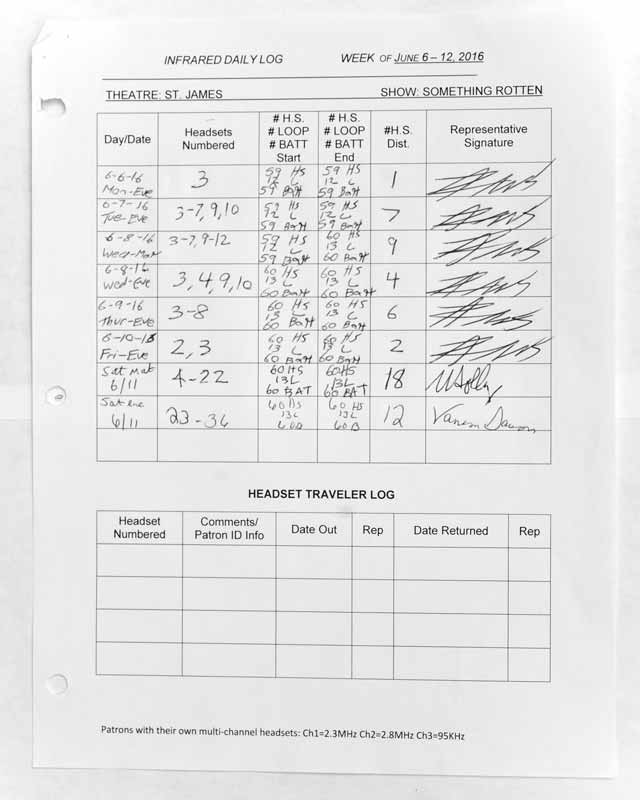 INFRARED DAILY LOG WEEK OF JUNE 6 – 12, 2016
THEATRE: ST. JAMES SHOW: SOMETHING ROTTEN
Day/Date
Headsets
Numbered
# H.S.
# LOOP
# BATT
Start
# H.S.
# LOOP
# BATT
End
#H.S.
Dist.
Representative
Signature
6-6-16
Mon-Eve
3
59 HS
12 L
59 Batt
59 HS
12 L
59 Batt
1
6-7-16
Tue-Eve
3-7,9,10
59 HS
12 L
59 Batt
59 HS
12 L
59 Batt
7
6-8-16
Wed-Mat
3-7,9-12
59 HS
12 L
59 Batt
60 HS
13 L
60 Batt
9
6-8-16
Wed-Eve
3,4,9,10
60 HS
13 L
60 Batt
60 HS
13 L
60 Batt
4
6-9-16
Thur-Eve
3-8
60 HS
13 L
60 Batt
60 HS
13 L
60 Batt
6
6-10-16
Fri-Eve
2,3
60 HS
13 L
60 Batt
60 HS
13 L
60 Batt
2
Sat Mat
6/11
4-22
60 HS
13L
60 BAT
60HS
13L
60 BAT
18
Sat eve
6/11
23-36
60 HS
13L
60B
60 HS
13L
60 B
12
HEADSET TRAVELER LOG
Headset
Numbered
Comments/
Patron ID Info
Date Out
Rep
Date Returned
Rep
Patrons with their own multi-channel headsets: Ch1=2.3MHz Ch2=2.8MHz Ch3=95KHz